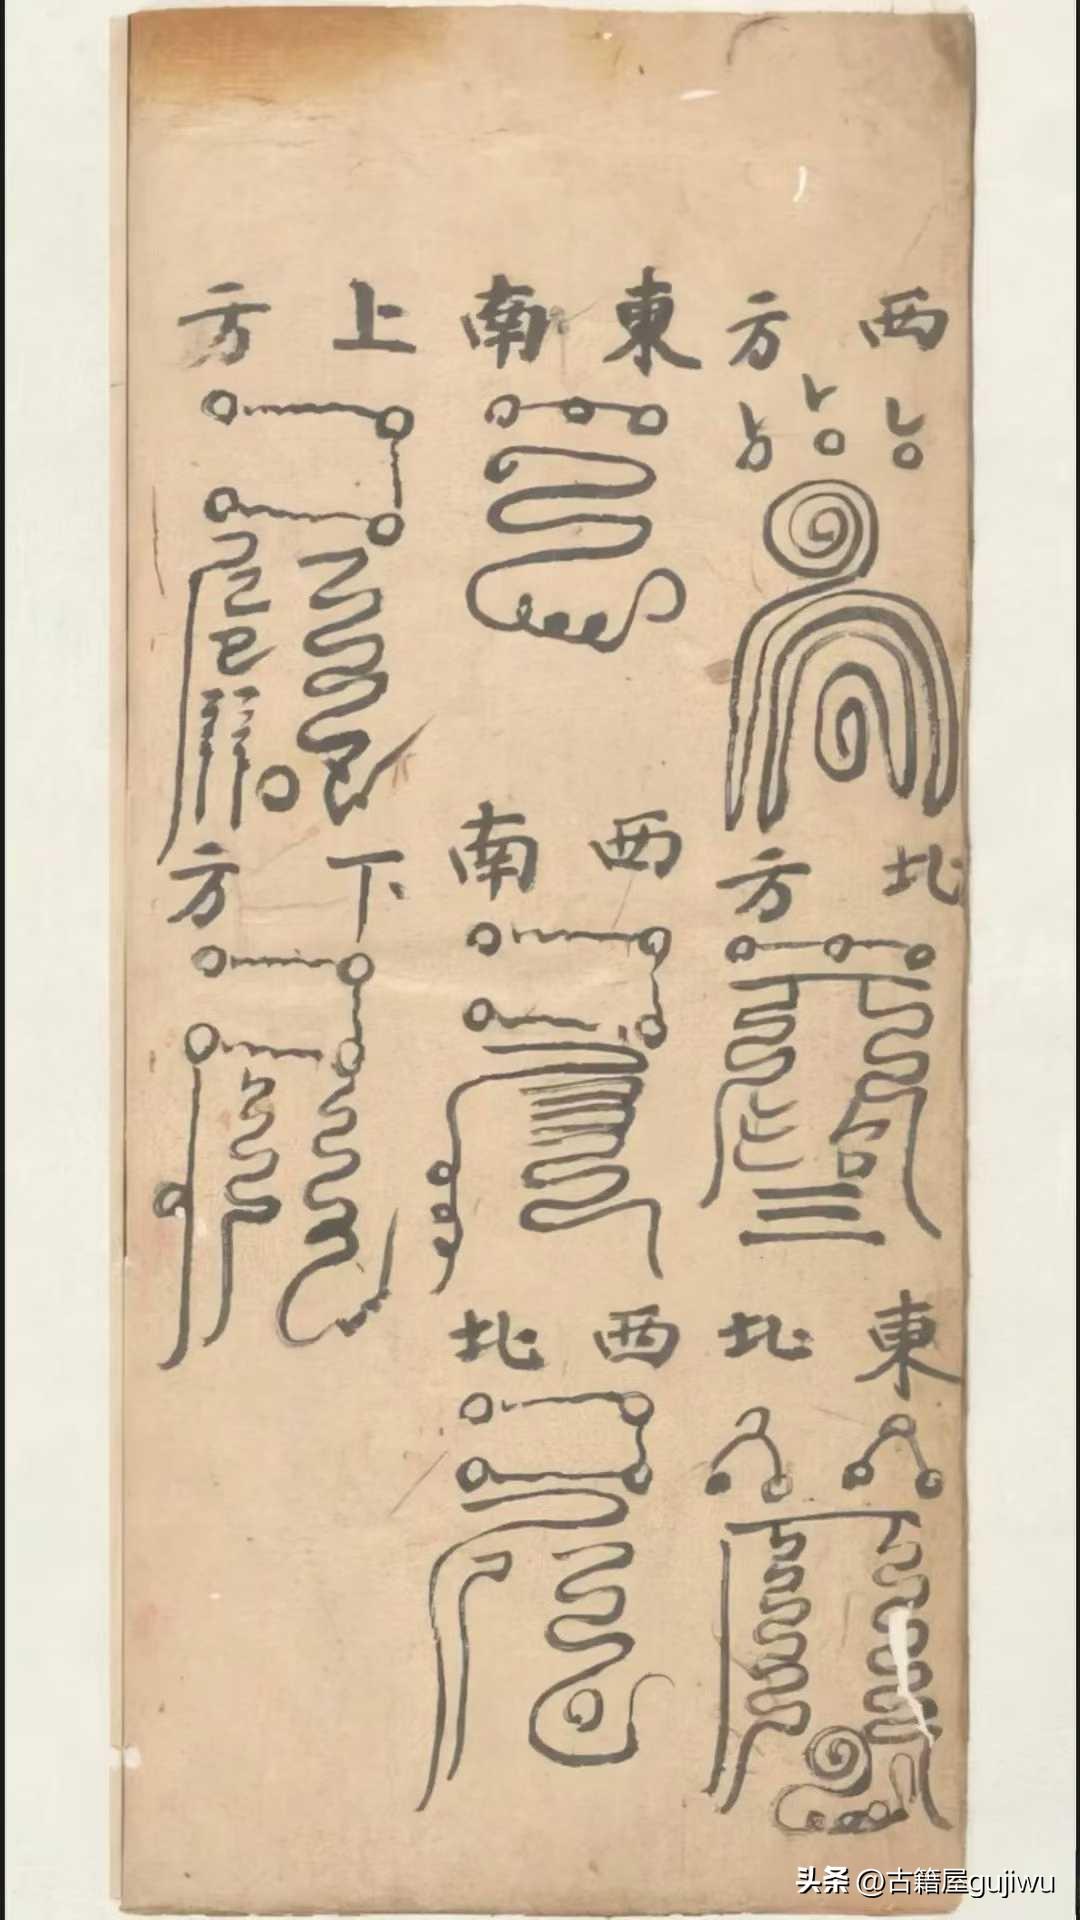 西方
北方
東北
東南
西南
西北
上方
下方
头条 @古籍屋gujiwu